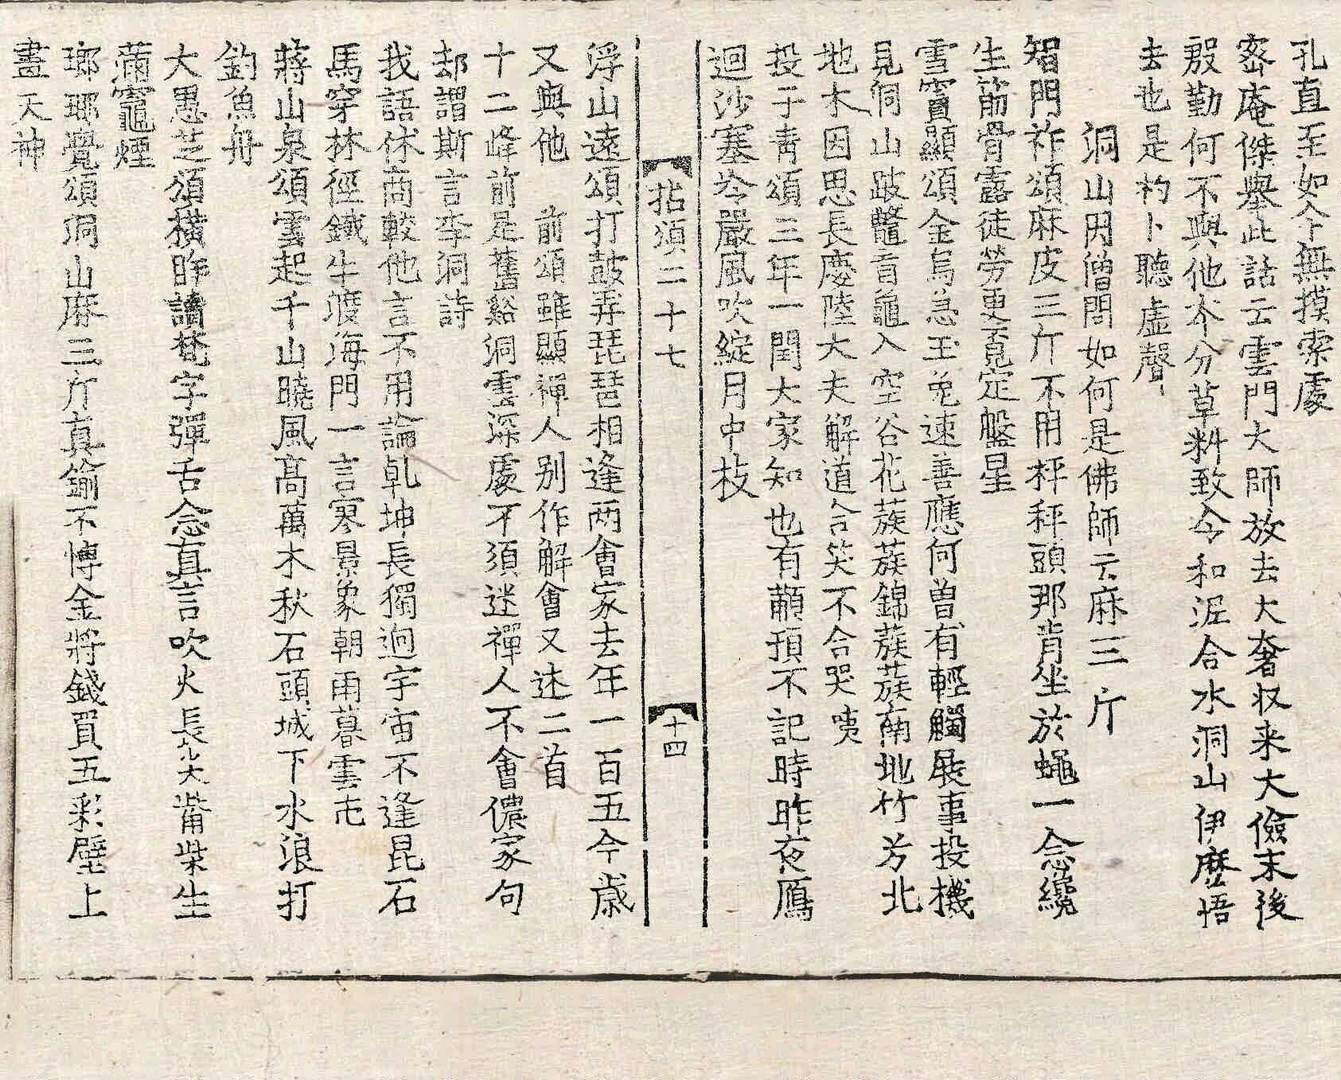 孔直至如今無摸索處
密庵傑擧此話云雲門大師放去大奢収来大儉末後
殷勤何不與他夲分草料致今和泥合水洞山伊麽悟
去也是杓卜聽虛聲
洞山因僧問如何是佛師云麻三斤
智門祚頌麻皮三斤不用秤秤頭那肯坐於蠅一念纔
生筋骨露徒勞更覔定盤星
雪竇顯頌金烏急玉兔速善應何曽有輕觸展事投機
見洞山跛鼈盲龜入空谷花蔟蔟錦蔟蔟南地竹芳北
地木因思長慶陸大夫解道合笑不合哭咦
投子靑頌三年一閏大家知也有顢頇不記時昨夜鴈
迴沙塞冷嚴風吹綻月中枝
拈頌二十七
十四
浮山遠頌打皷弄琵琶相逢两會家去年一百五今歳
又與他 前頌雖顯禅人別作解會又述二首
十二峰前是舊谿洞雲深處不須迷禪人不會儂家句
却謂斯言李洞詩
我語休商較他言不用論乹坤長獨逈宇宙不逢昆石
馬穿林徑鐵牛渡海門一言寥景象朝雨暮雲屯
蔣山泉頌雲起千山曉風髙萬木秋石頭城下水浪打
釣魚舟
大愚芝頌橫眸讀梵字彈舌念真言吹火長尖觜柴生
滿竈煙
瑯瑘覺頌洞山麻三斤真鍮不博金將錢買五彩壁上
畫天神